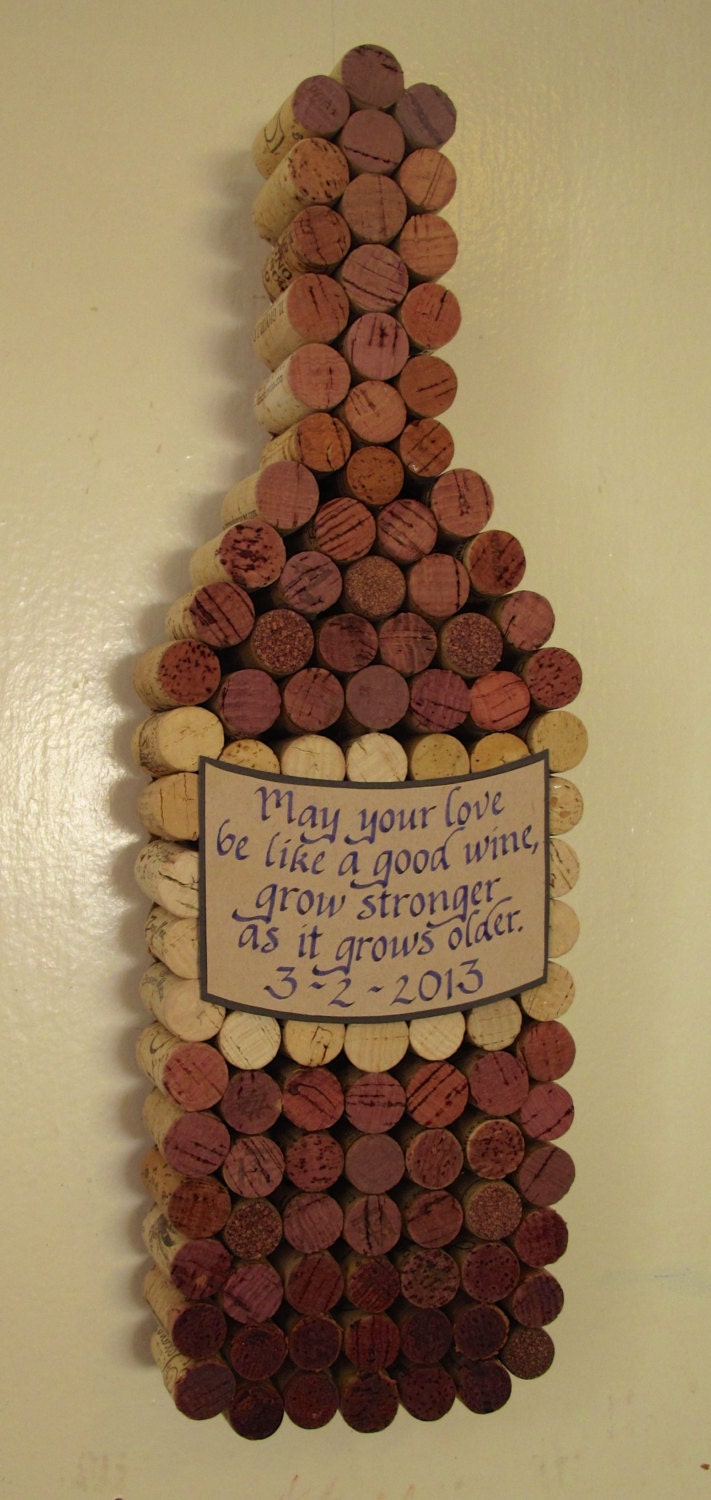 May your love
be like a good wine,
grow stronger
as it grows older.
3-2-2013